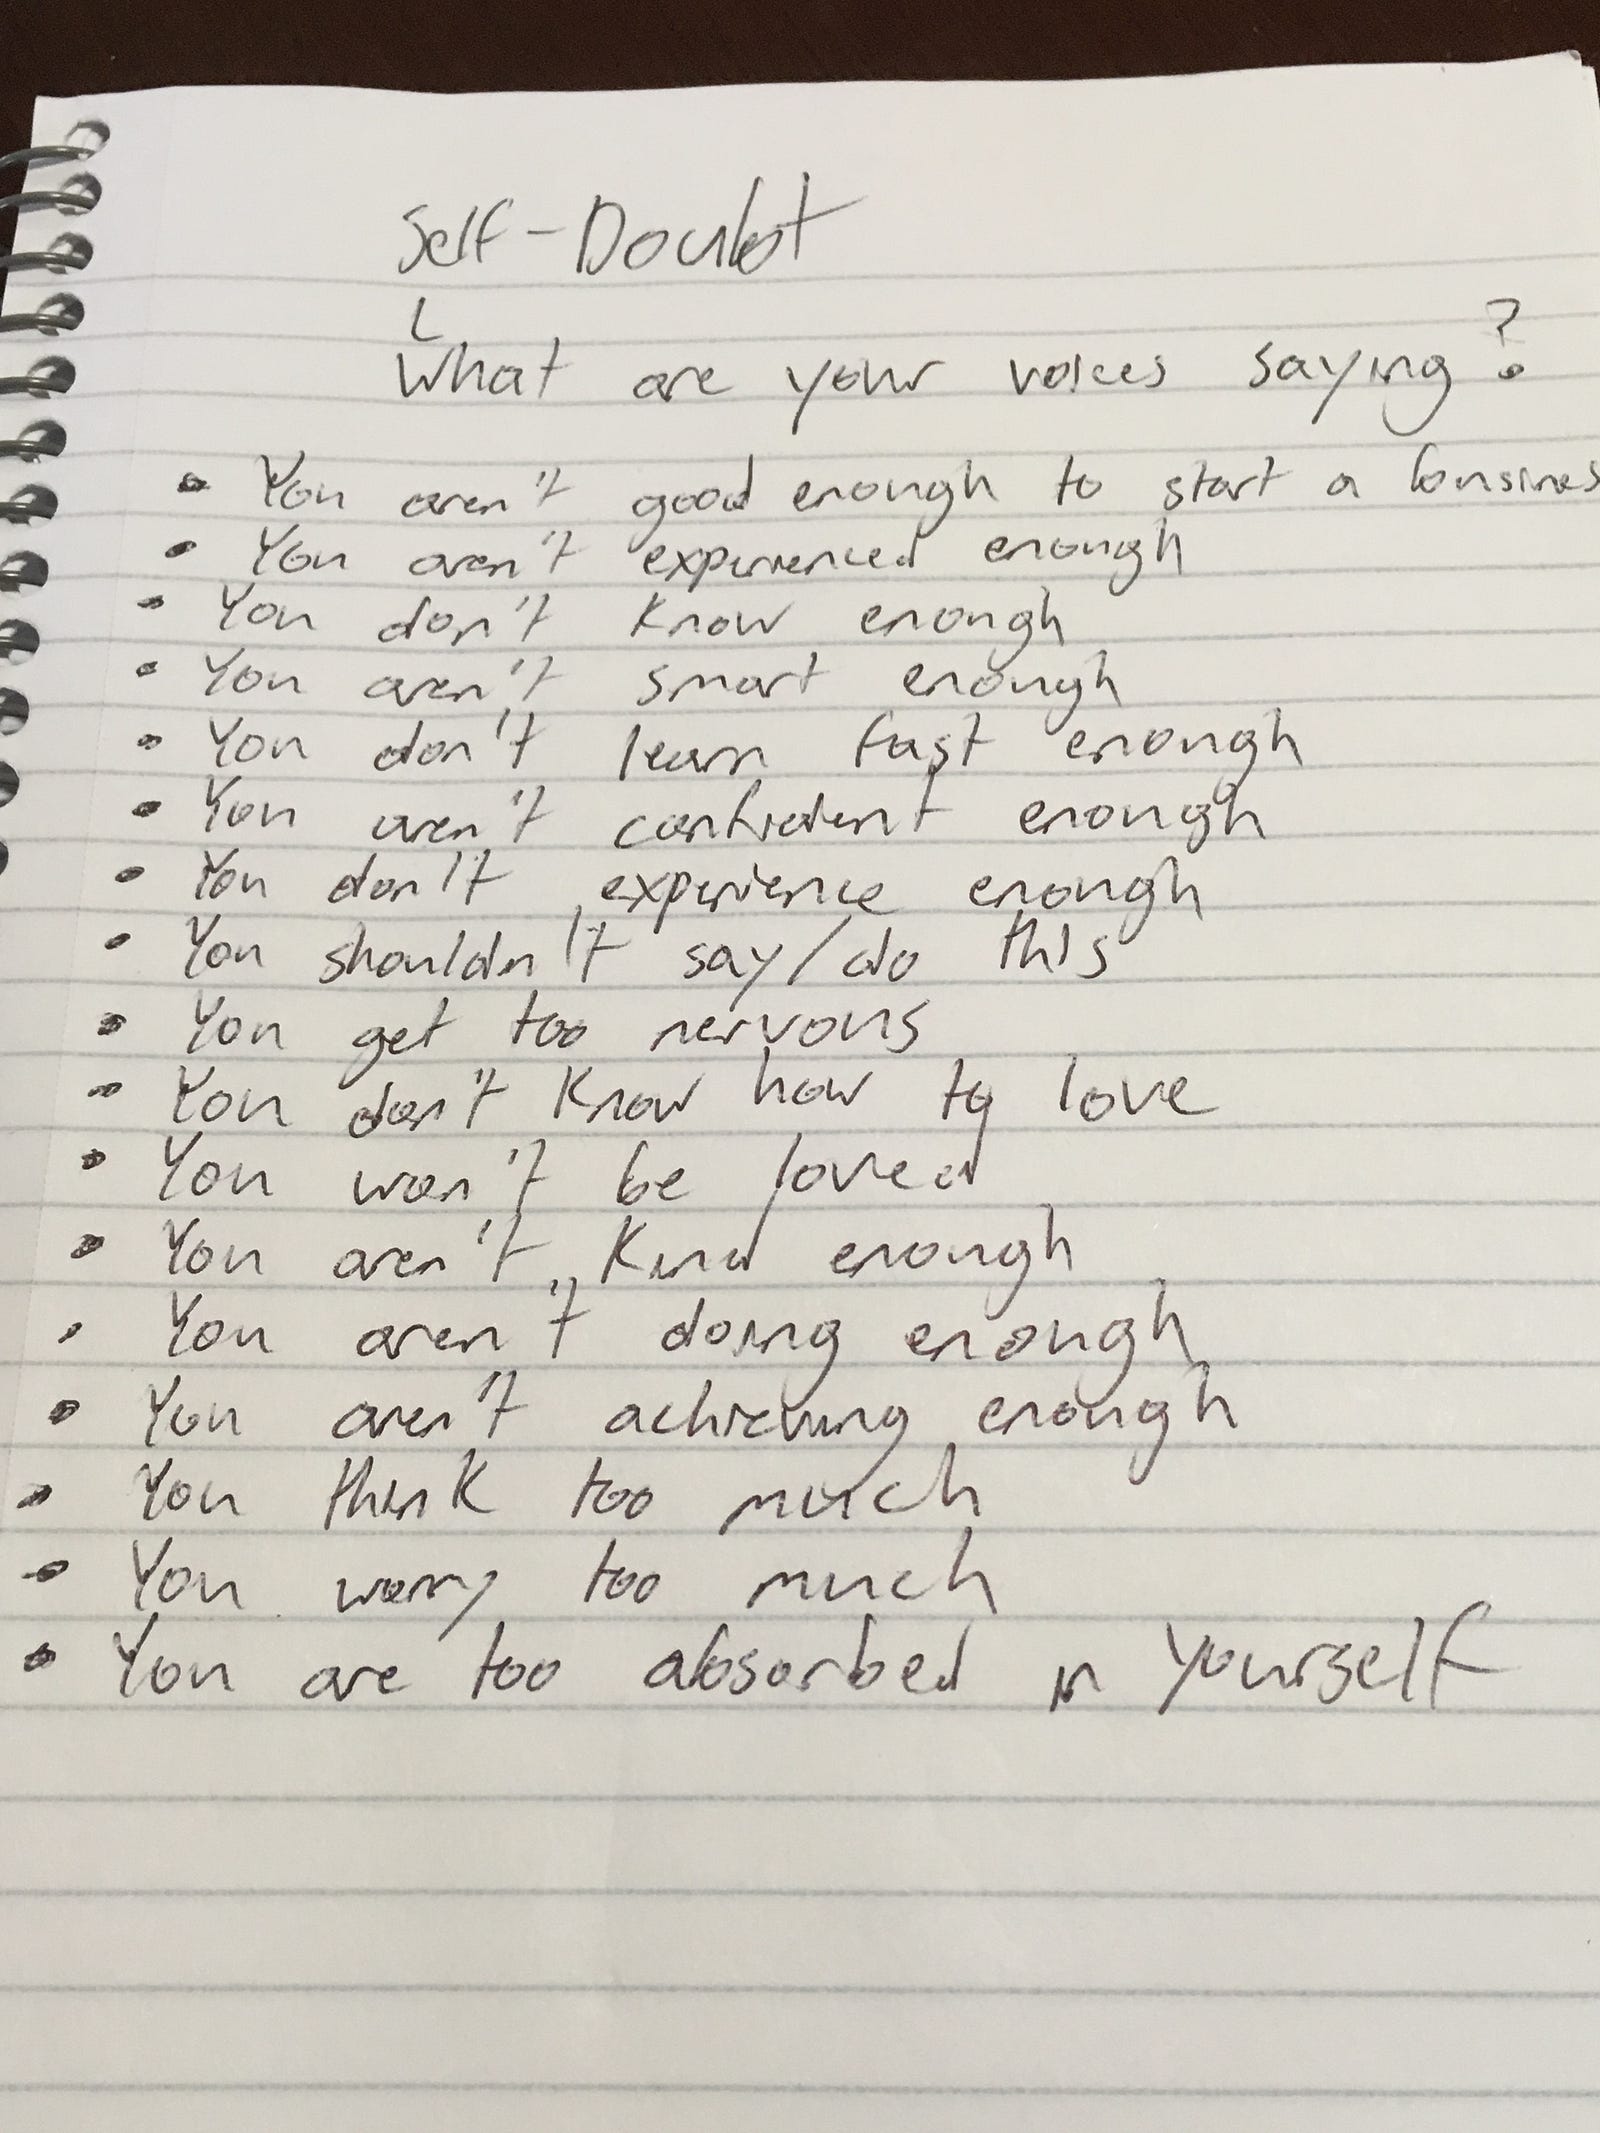 Self-Doubt
What are your voices saying?
• You aren't good enough to start a business
• You aren't experienced enough
• You don't know enough
• You aren't smart enough
• You don't learn fast enough
• You aren't confident enough
• You don't experience enough
• You shouldn't say/do this
• You get too nervous
• You don't know how to love
• You won't be loved
• You aren't kind enough
• You aren't doing enough
• You aren't achieving enough
• You think too much
• You worry too much
• You are too absorbed in yourself